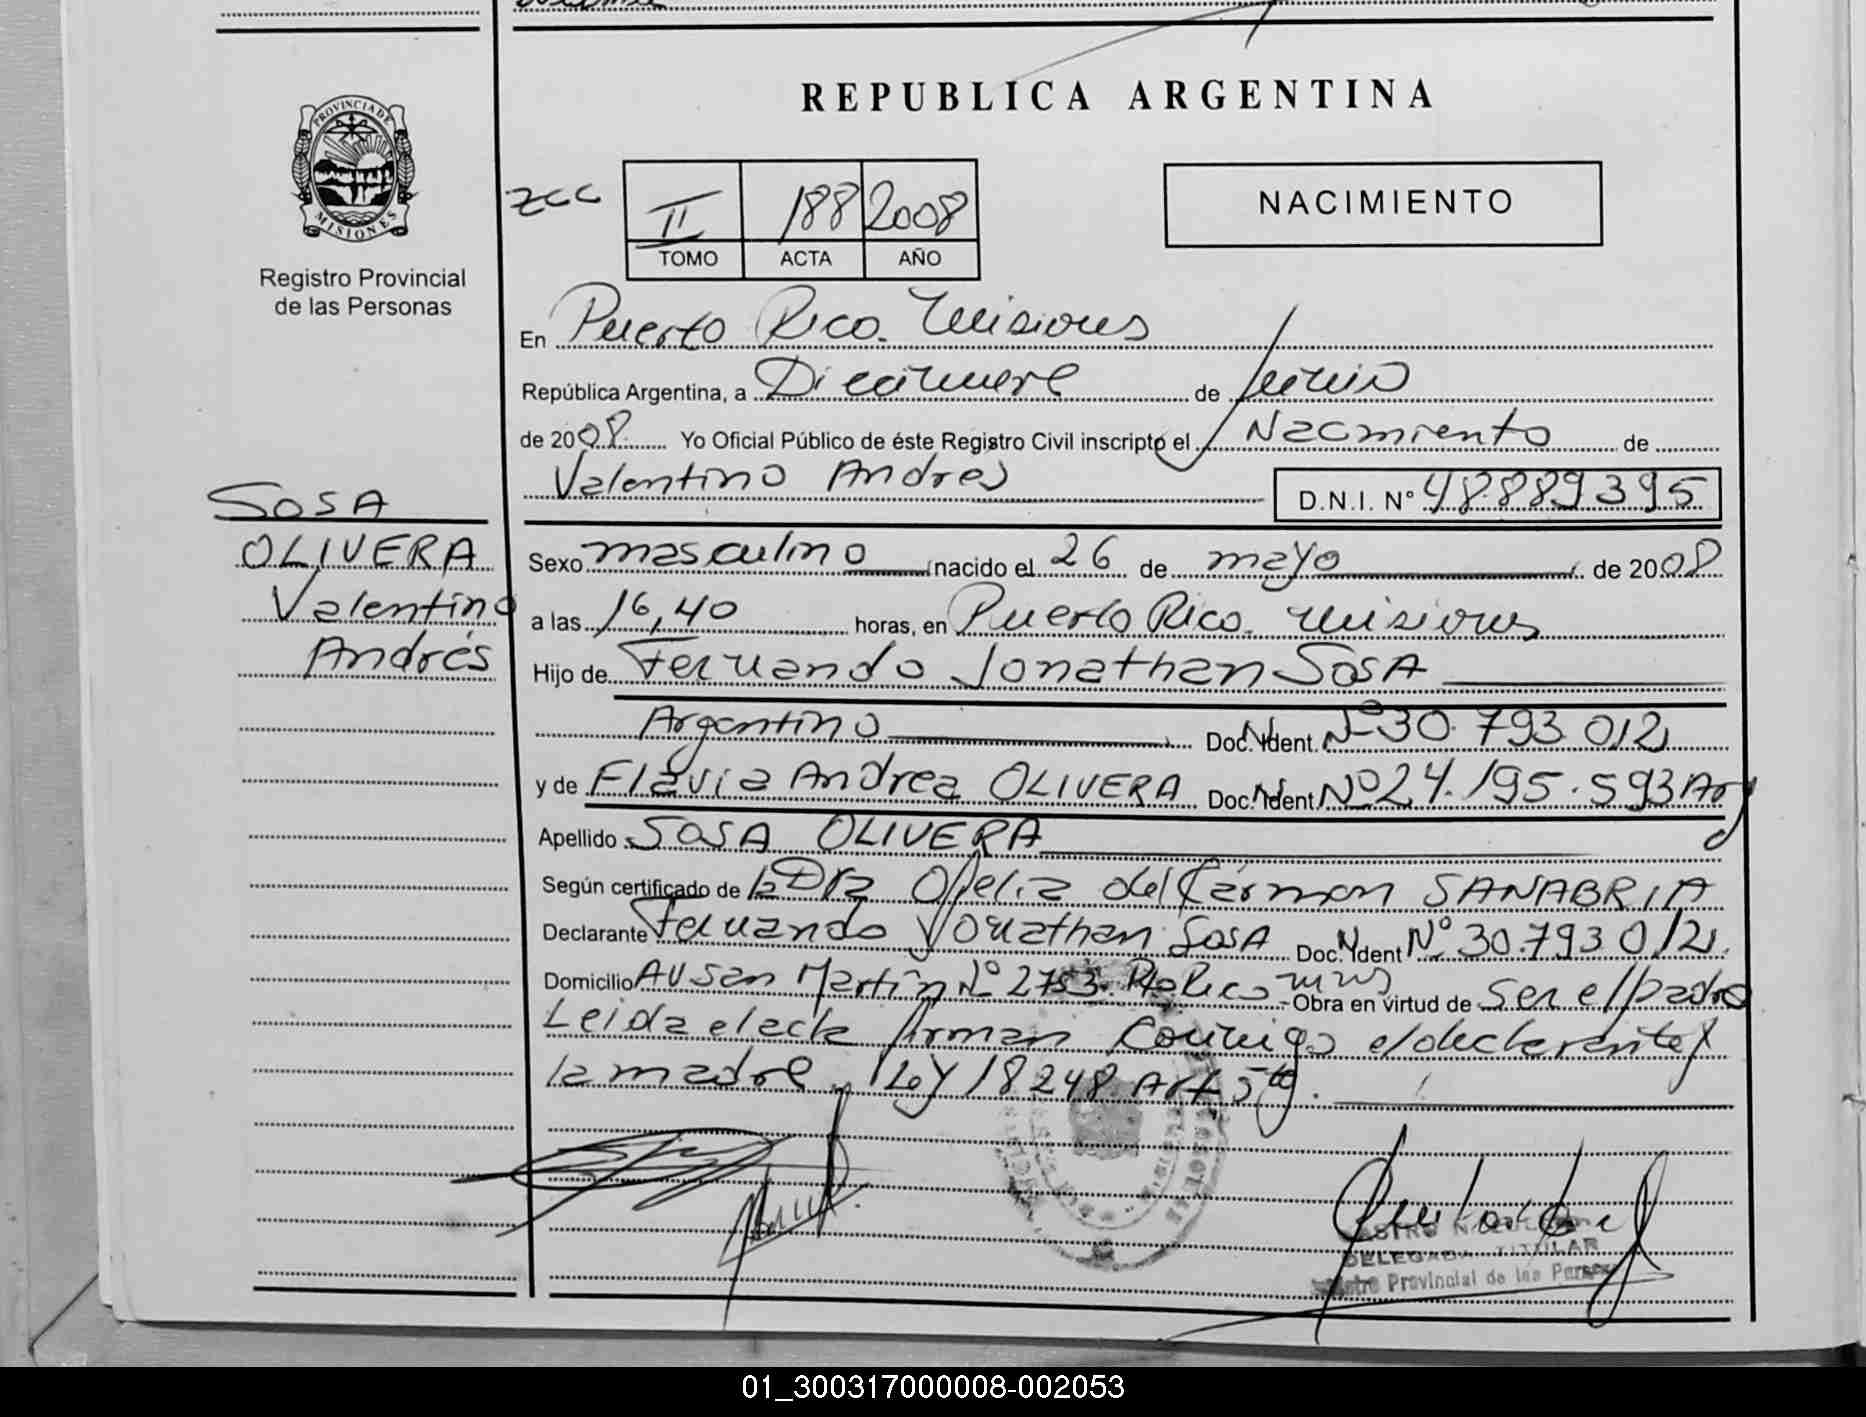 REPUBLICA ARGENTINA
PROVINCIA DE MISIONES
Registro Provincial
de las Personas
II 188 2008
TOMO ACTA AÑO
NACIMIENTO
En Puerto Rico. Misiones
República Argentina, a de Junio
de 2008. Yo Oficial Público de éste Registro Civil inscripto el Nacimiento de
Valentino Andres D.N.I. N° 48.889395
SOSA
OLIVERA
Valentino
Andrés
Sexo masculino nacido el 26 de mayo de 2008
a las 16,40 horas, en Puerto Rico. Misiones
Hijo de Fernando Jonathan SOSA
Argentino Doc. Ident. Nº 30.793.012
y de Flavia Andrea OLIVERA Doc. Ident. Nº 24.195.593 Arg
Apellido SOSA OLIVERA
Según certificado de la Dra Ofelia del Carmen SANABRIA
Declarante Fernando Jonathan SOSA Doc. Ident Nº 30.793012.
Domicilio AV San Martín Nº 2753. Pto Rico Mnes Obra en virtud de ser el padre
Leida el acta firman conmigo el declarante y
la madre. Ley 18248 Art 5to.
DELEGADA TITULAR
Registro Provincial de las Personas
01_300317000008-002053